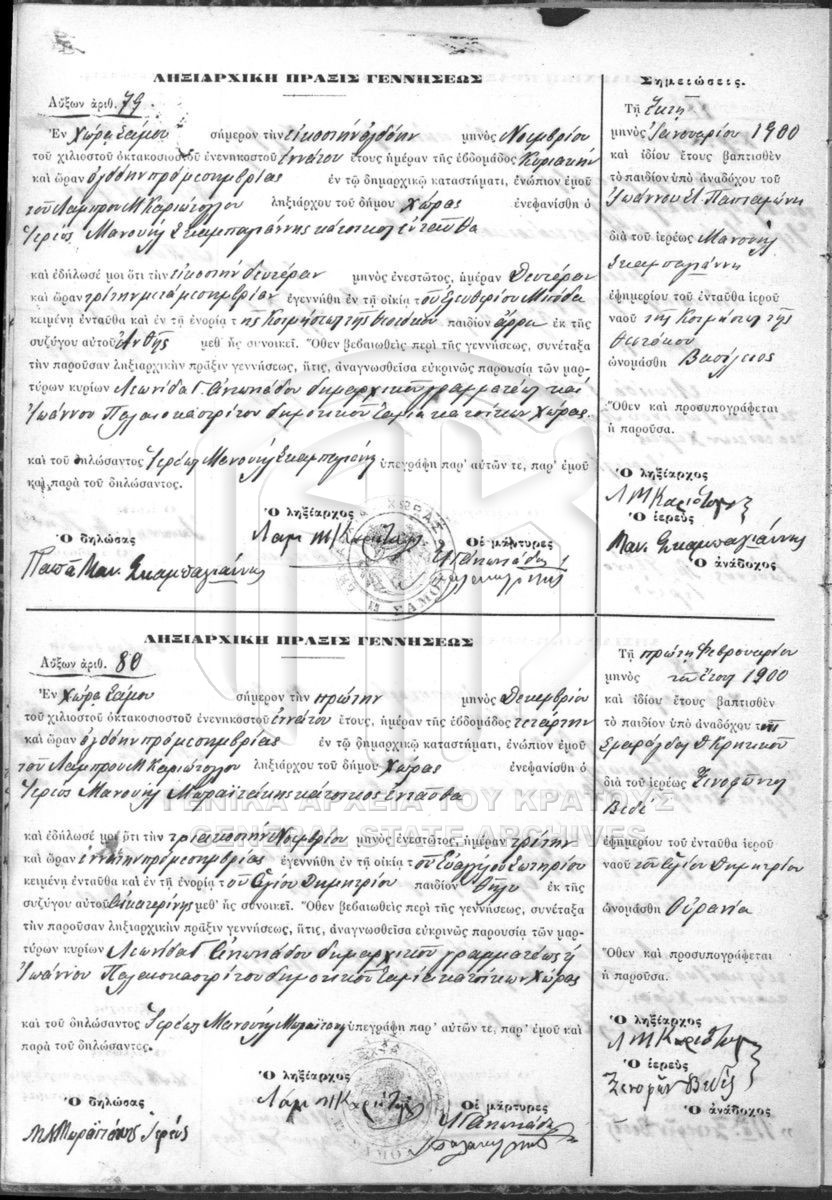 ΛΗΞΙΑΡΧΙΚΗ ΠΡΑΞΙΣ ΓΕΝΝΗΣΕΩΣ
Αὔξων ἀριθ. 79.
Ἐν Χώρᾳ Σάμου σήμερον τὴν εἰκοστὴν ὀγδόην μηνὸς Νοεμβρίου
τοῦ χιλιοστοῦ ὀκτακοσιοστοῦ ἐνενηκοστοῦ ἐννάτου ἔτους ἡμέραν τῆς ἑβδομάδος Κυριακὴν
καὶ ὥραν ὀγδόην πρὸ μεσημβρίας ἐν τῷ δημαρχικῷ καταστήματι, ἐνώπιον ἐμοῦ
τοῦ Λάμπρου Μ Καριώτογλου ληξιάρχου τοῦ δήμου Χώρας ἐνεφανίσθη ὁ
Ἱερεὺς Μανουὴλ Σκαμπαγιάννης κάτοικος ἐνταῦθα
καὶ ἐδήλωσέ μοι ὅτι τὴν εἰκοστὴν δευτέραν μηνὸς ἐνεστῶτος, ἡμέραν Δευτέραν
καὶ ὥραν τρίτην μετὰ μεσημβρίαν ἐγεννήθη ἐν τῇ οἰκίᾳ τοῦ Ἐλευθερίου
κειμένῃ ἐνταῦθα καὶ ἐν τῇ ἐνορίᾳ τῆς Κοιμήσεως τῆς Θεοτόκου παιδίον ἄρρεν ἐκ τῆς
συζύγου αὐτοῦ Ἀνθῆς μεθ' ἧς συνοικεῖ. Ὅθεν βεβαιωθεὶς περὶ τῆς γεννήσεως, συνέταξα
τὴν παροῦσαν ληξιαρχικὴν πρᾶξιν γεννήσεως, ἥτις, ἀναγνωσθεῖσα εὐκρινῶς παρουσίᾳ τῶν μαρ-
τύρων κυρίων Λεωνίδα Γ δημαρχικοῦ γραμματέως καὶ
Ἰωάννου Παλαιοκαστρίτου δημοτικοῦ ταμία κατοίκων Χώρας.
καὶ τοῦ δηλώσαντος Ἱερέως Μανουὴλ Σκαμπαγιάννη ὑπεγράφη παρ' αὐτῶν τε, παρ' ἐμοῦ
καὶ παρὰ τοῦ δηλώσαντος.
Ὁ ληξίαρχος
Ὁ δηλώσας
Οἱ μάρτυρες
Παπᾶ Μαν. Σκαμπαγιάννης
Σημειώσεις.
Τῇ ἕκτῃ
μηνὸς Ἰανουαρίου 1900
καὶ ἰδίου ἔτους βαπτισθὲν
τὸ παιδίον ὑπὸ ἀναδόχου τοῦ
Ἰωάννου
διὰ τοῦ ἱερέως Μανουὴλ
Σκαμπαγιάννη
ἐφημερίου τοῦ ἐνταῦθα ἱεροῦ
ναοῦ τῆς Κοιμήσεως τῆς
Θεοτόκου
ὠνομάσθη Βασίλειος
Ὅθεν καὶ προσυπογράφεται
ἡ παροῦσα.
Ὁ ληξίαρχος
Ὁ ἱερεὺς
Μαν. Σκαμπαγιάννης
Ὁ ἀνάδοχος
ΛΗΞΙΑΡΧΙΚΗ ΠΡΑΞΙΣ ΓΕΝΝΗΣΕΩΣ
Αὔξων ἀριθ. 80
Ἐν Χώρᾳ Σάμου σήμερον τὴν πρώτην μηνὸς Δεκεμβρίου
τοῦ χιλιοστοῦ ὀκτακοσιοστοῦ ἐνενηκοστοῦ ἐννάτου ἔτους, ἡμέραν τῆς ἑβδομάδος τετάρτην
καὶ ὥραν ὀγδόην πρὸ μεσημβρίας ἐν τῷ δημαρχικῷ καταστήματι, ἐνώπιον ἐμοῦ
τοῦ Λάμπρου Μ Καριώτογλου ληξιάρχου τοῦ δήμου Χώρας ἐνεφανίσθη ὁ
Ἱερεὺς Μανουὴλ Μαραϊτάκης κάτοικος ἐνταῦθα
ΓΕΝΙΚΑ ΑΡΧΕΙΑ ΤΟΥ ΚΡΑΤΟΥΣ
GENERAL STATE ARCHIVES
καὶ ἐδήλωσέ μοι ὅτι τὴν τριακοστὴν Νοεμβρίου μηνὸς ἐνεστῶτος, ἡμέραν τρίτην
καὶ ὥραν ἐννάτην πρὸ μεσημβρίας ἐγεννήθη ἐν τῇ οἰκίᾳ τοῦ Εὐαγγέλου Σωτηρίου
κειμένῃ ἐνταῦθα καὶ ἐν τῇ ἐνορίᾳ τοῦ Ἁγίου Δημητρίου παιδίον θῆλυ ἐκ τῆς
συζύγου αὐτοῦ Αἰκατερίνης μεθ' ἧς συνοικεῖ. Ὅθεν βεβαιωθεὶς περὶ τῆς γεννήσεως, συνέταξα
τὴν παροῦσαν ληξιαρχικὴν πρᾶξιν γεννήσεως, ἥτις, ἀναγνωσθεῖσα εὐκρινῶς παρουσίᾳ τῶν μαρ-
τύρων κυρίων Λεωνίδα Γ δημαρχικοῦ γραμματέως
Ἰωάννου Παλαιοκαστρίτου δημοτικοῦ ταμία κατοίκων Χώρας
καὶ τοῦ δηλώσαντος Ἱερέως Μανουὴλ Μαραϊτάκη ὑπεγράφη παρ' αὐτῶν τε, παρ' ἐμοῦ καὶ
παρὰ τοῦ δηλώσαντος.
Ὁ ληξίαρχος
Ὁ δηλώσας
Οἱ μάρτυρες
Τῇ πρώτῃ Φεβρουαρίου
μηνὸς τοῦ ἔτους 1900
καὶ ἰδίου ἔτους βαπτισθὲν
τὸ παιδίον ὑπὸ ἀναδόχου τῆς
Σμαράγδας Δ Κρητικοῦ
διὰ τοῦ ἱερέως Ξενοφῶντος
Βεδὲ
ἐφημερίου τοῦ ἐνταῦθα ἱεροῦ
ναοῦ τοῦ Ἁγίου Δημητρίου
ὠνομάσθη Οὐρανία
Ὅθεν καὶ προσυπογράφεται
ἡ παροῦσα.
Ὁ ληξίαρχος
Ὁ ἱερεὺς
Ὁ ἀνάδοχος